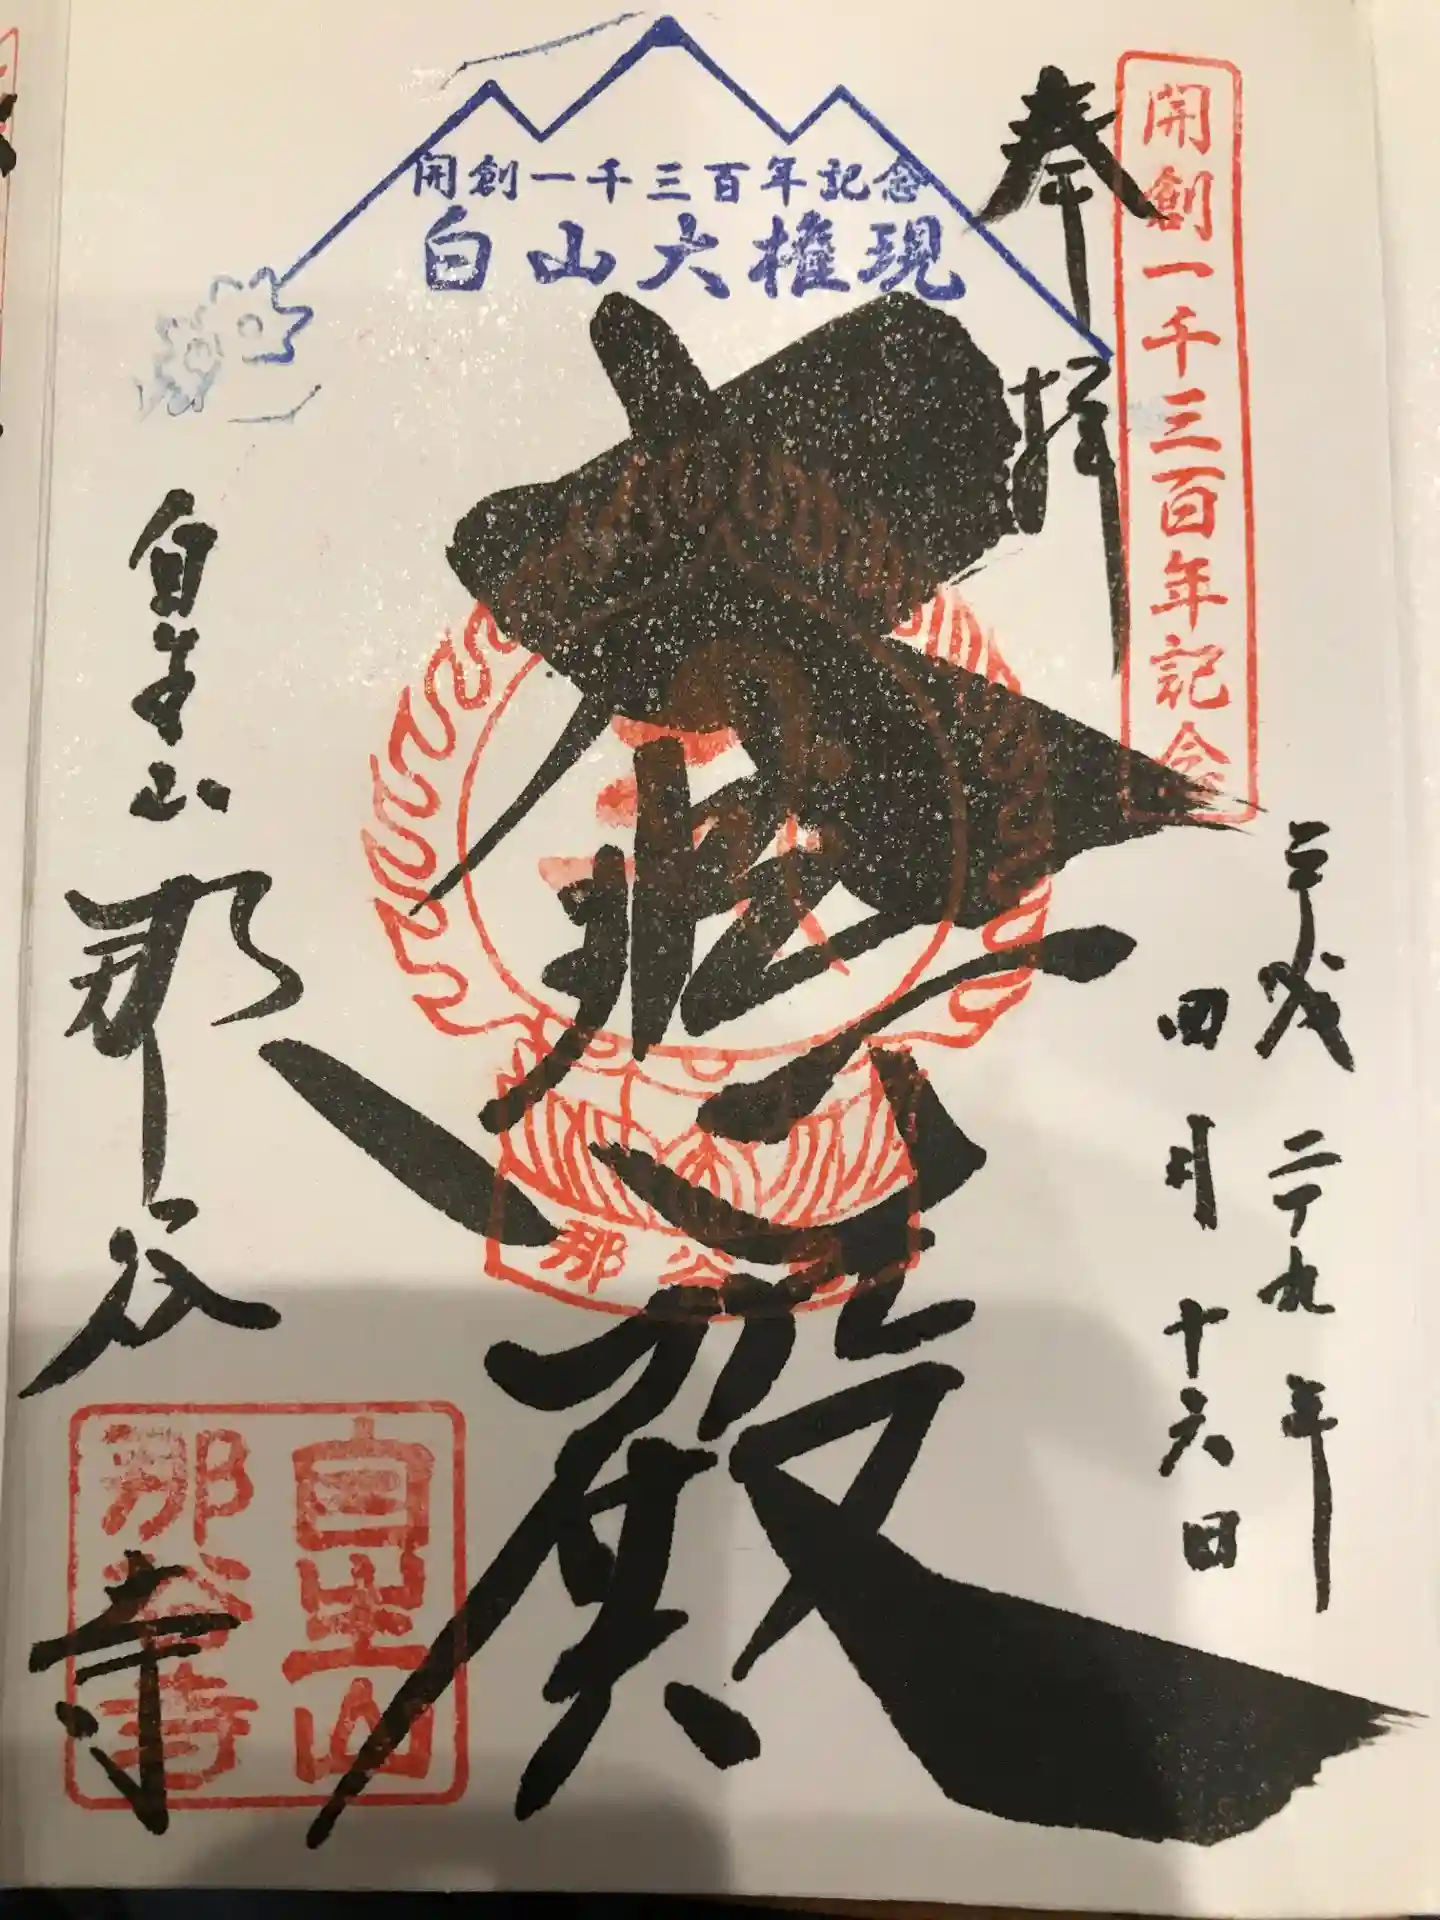 開創一千三百年記念
奉拝
平成二十九年
四月十六日
開創一千三百年記念
白山大権現
大悲殿
自生山
那谷寺
那谷寺
自生山
那谷寺